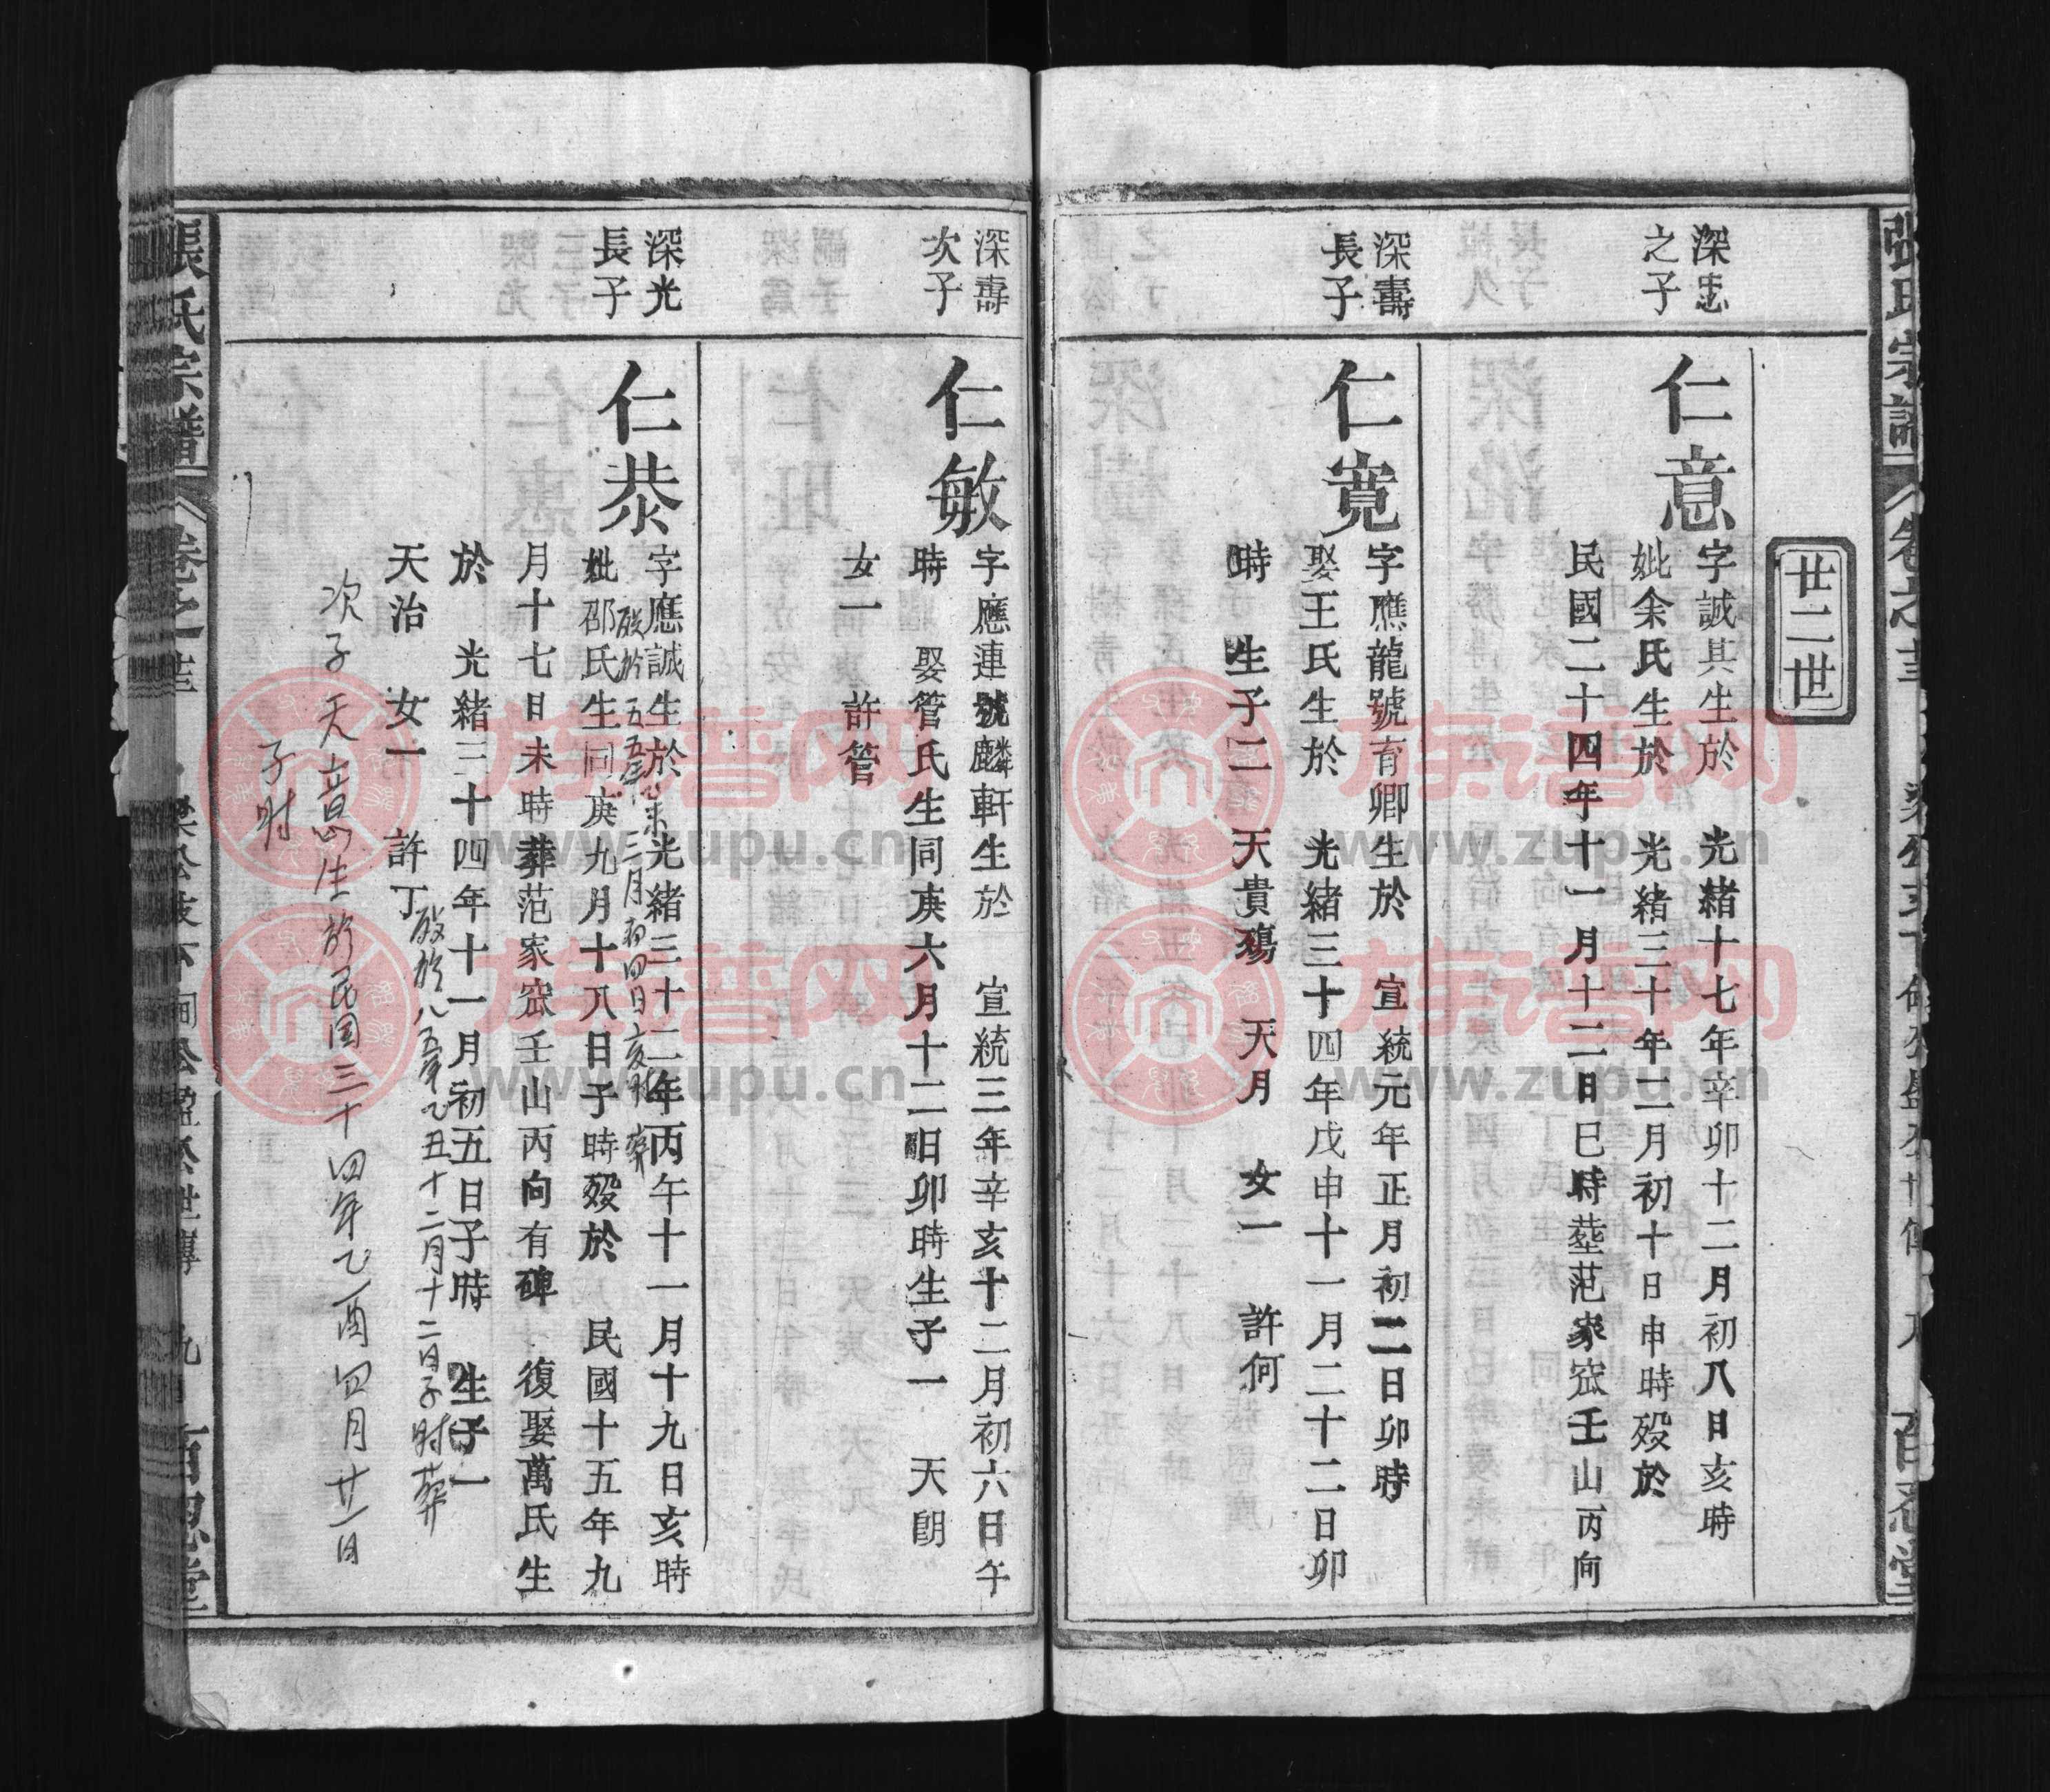 張氏宗譜
百忍堂
廿二世
深忠
之子
仁意
字誠其生於 光緒十七年辛卯十二月初八日亥時
妣余氏生於 光緒三十年二月初十日申時殁於
民國二十四年十一月十二日巳時塟范家窊壬山丙向
深壽
長子
仁寛
字應龍號育卿生於 宣統元年正月初二日卯時
娶王氏生於 光緒三十四年戊申十一月二十二日卯
時 生子二 天貴殤 天月 女一 許何
深壽
次子
仁敏
字應連號麟軒生於 宣統三年辛亥十二月初六日午
時 娶管氏生同庚六月十二日卯時生子一 天朗
女一 許管
深光
長子
仁恭
字應誠生於 光緒三十二年丙午十一月十九日亥時
殁於五五年 三月初四日亥时 葬
妣邵氏生同庚九月十八日子時殁於 民國十五年九
月十七日未時葬范家窊壬山丙向有碑 復娶萬氏生
於 光緒三十四年十一月初五日子時 生子一
殁於八五年乙丑十二月十二日子时葬
天治 女一 許丁
次子天意生於民国三十四年乙酉四月廿一日
子时
張氏宗譜
卷之
九
百忍堂
族谱网
www.zupu.cn
族谱网
www.zupu.cn
族谱网
www.zupu.cn
族谱网
www.zupu.cn